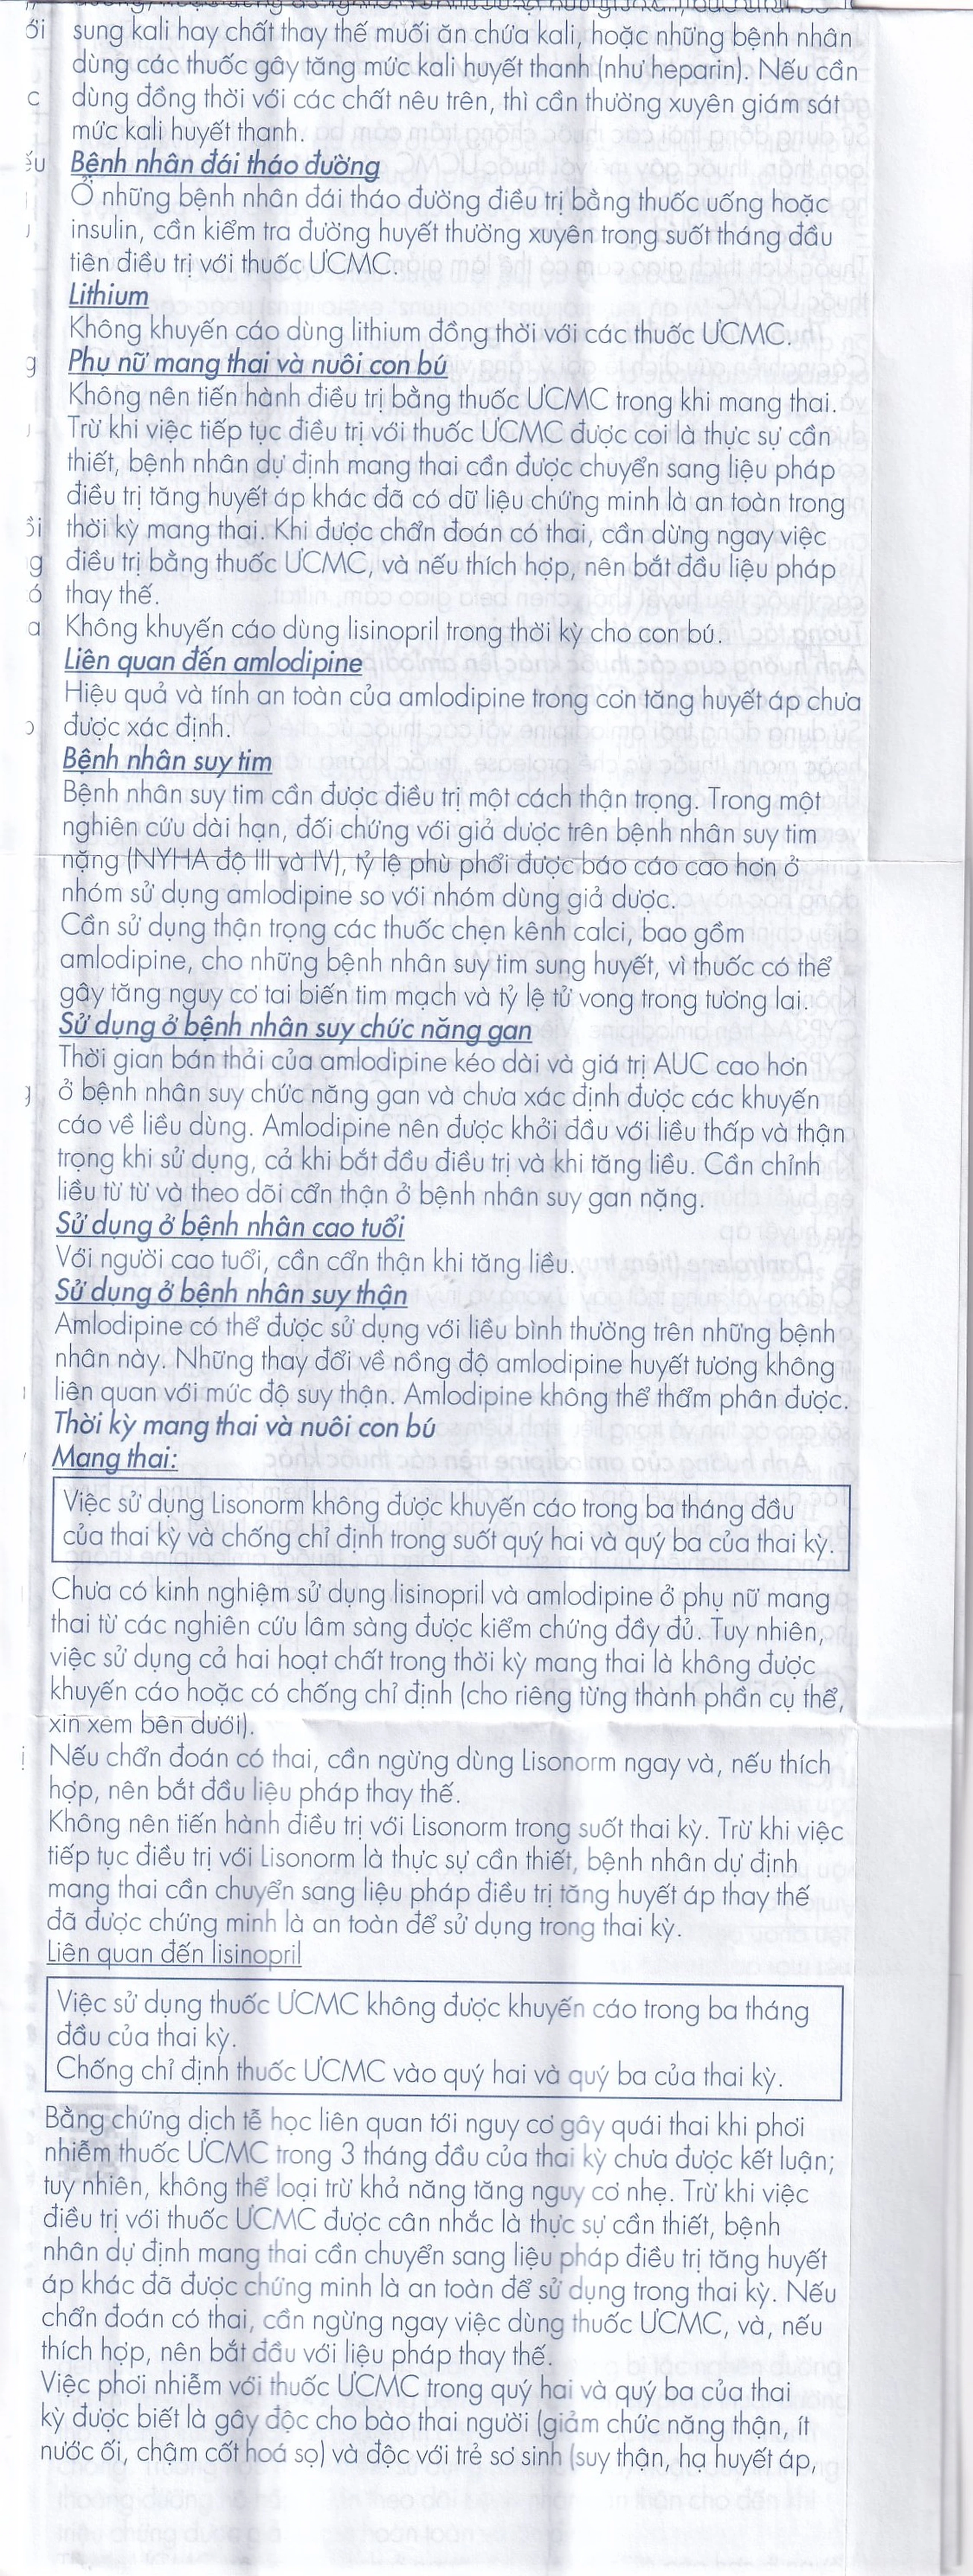 sung kali hay chất thay thế muối ăn chứa kali, hoặc những bệnh nhân
dùng các thuốc gây tăng mức kali huyết thanh (như heparin). Nếu cần
dùng đồng thời với các chất nêu trên, thì cần thường xuyên giám sát
mức kali huyết thanh.
Bệnh nhân đái tháo đường
Ở những bệnh nhân đái tháo đường điều trị bằng thuốc uống hoặc
insulin, cần kiểm tra đường huyết thường xuyên trong suốt tháng đầu
tiên điều trị với thuốc ƯCMC.
Lithium
Không khuyến cáo dùng lithium đồng thời với các thuốc ƯCMC.
Phụ nữ mang thai và nuôi con bú
Không nên tiến hành điều trị bằng thuốc ƯCMC trong khi mang thai.
Trừ khi việc tiếp tục điều trị với thuốc ƯCMC được coi là thực sự cần
thiết, bệnh nhân dự định mang thai cần được chuyển sang liệu pháp
điều trị tăng huyết áp khác đã có dữ liệu chứng minh là an toàn trong
thời kỳ mang thai. Khi được chẩn đoán có thai, cần dừng ngay việc
điều trị bằng thuốc ƯCMC, và nếu thích hợp, nên bắt đầu liệu pháp
thay thế.
Không khuyến cáo dùng lisinopril trong thời kỳ cho con bú.
Liên quan đến amlodipine
Hiệu quả và tính an toàn của amlodipine trong cơn tăng huyết áp chưa
được xác định.
Bệnh nhân suy tim
Bệnh nhân suy tim cần được điều trị một cách thận trọng. Trong một
nghiên cứu dài hạn, đối chứng với giả dược trên bệnh nhân suy tim
nặng (NYHA độ III và IV), tỷ lệ phù phổi được báo cáo cao hơn ở
nhóm sử dụng amlodipine so với nhóm dùng giả dược.
Cần sử dụng thận trọng các thuốc chẹn kênh calci, bao gồm
amlodipine, cho những bệnh nhân suy tim sung huyết, vì thuốc có thể
gây tăng nguy cơ tai biến tim mạch và tỷ lệ tử vong trong tương lai.
Sử dụng ở bệnh nhân suy chức năng gan
Thời gian bán thải của amlodipine kéo dài và giá trị AUC cao hơn
ở bệnh nhân suy chức năng gan và chưa xác định được các khuyến
cáo về liều dùng. Amlodipine nên được khởi đầu với liều thấp và thận
trọng khi sử dụng, cả khi bắt đầu điều trị và khi tăng liều. Cần chỉnh
liều từ từ và theo dõi cẩn thận ở bệnh nhân suy gan nặng.
Sử dụng ở bệnh nhân cao tuổi
Với người cao tuổi, cần cẩn thận khi tăng liều.
Sử dụng ở bệnh nhân suy thận
Amlodipine có thể được sử dụng với liều bình thường trên những bệnh
nhân này. Những thay đổi về nồng độ amlodipine huyết tương không
liên quan với mức độ suy thận. Amlodipine không thể thẩm phân được.
Thời kỳ mang thai và nuôi con bú
Mang thai:
Việc sử dụng Lisonorm không được khuyến cáo trong ba tháng đầu
của thai kỳ và chống chỉ định trong suốt quý hai và quý ba của thai kỳ.
Chưa có kinh nghiệm sử dụng lisinopril và amlodipine ở phụ nữ mang
thai từ các nghiên cứu lâm sàng được kiểm chứng đầy đủ. Tuy nhiên,
việc sử dụng cả hai hoạt chất trong thời kỳ mang thai là không được
khuyến cáo hoặc có chống chỉ định (cho riêng từng thành phần cụ thể,
xin xem bên dưới).
Nếu chẩn đoán có thai, cần ngừng dùng Lisonorm ngay và, nếu thích
hợp, nên bắt đầu liệu pháp thay thế.
Không nên tiến hành điều trị với Lisonorm trong suốt thai kỳ. Trừ khi việc
tiếp tục điều trị với Lisonorm là thực sự cần thiết, bệnh nhân dự định
mang thai cần chuyển sang liệu pháp điều trị tăng huyết áp thay thế
đã được chứng minh là an toàn để sử dụng trong thai kỳ.
Liên quan đến lisinopril
Việc sử dụng thuốc ƯCMC không được khuyến cáo trong ba tháng
đầu của thai kỳ.
Chống chỉ định thuốc ƯCMC vào quý hai và quý ba của thai kỳ.
Bằng chứng dịch tễ học liên quan tới nguy cơ gây quái thai khi phơi
nhiễm thuốc ƯCMC trong 3 tháng đầu của thai kỳ chưa được kết luận;
tuy nhiên, không thể loại trừ khả năng tăng nguy cơ nhẹ. Trừ khi việc
điều trị với thuốc ƯCMC được cân nhắc là thực sự cần thiết, bệnh
nhân dự định mang thai cần chuyển sang liệu pháp điều trị tăng huyết
áp khác đã được chứng minh là an toàn để sử dụng trong thai kỳ. Nếu
chẩn đoán có thai, cần ngừng ngay việc dùng thuốc ƯCMC, và, nếu
thích hợp, nên bắt đầu với liệu pháp thay thế.
Việc phơi nhiễm với thuốc ƯCMC trong quý hai và quý ba của thai
kỳ được biết là gây độc cho bào thai người (giảm chức năng thận, ít
nước ối, chậm cốt hoá sọ) và độc với trẻ sơ sinh (suy thận, hạ huyết áp,